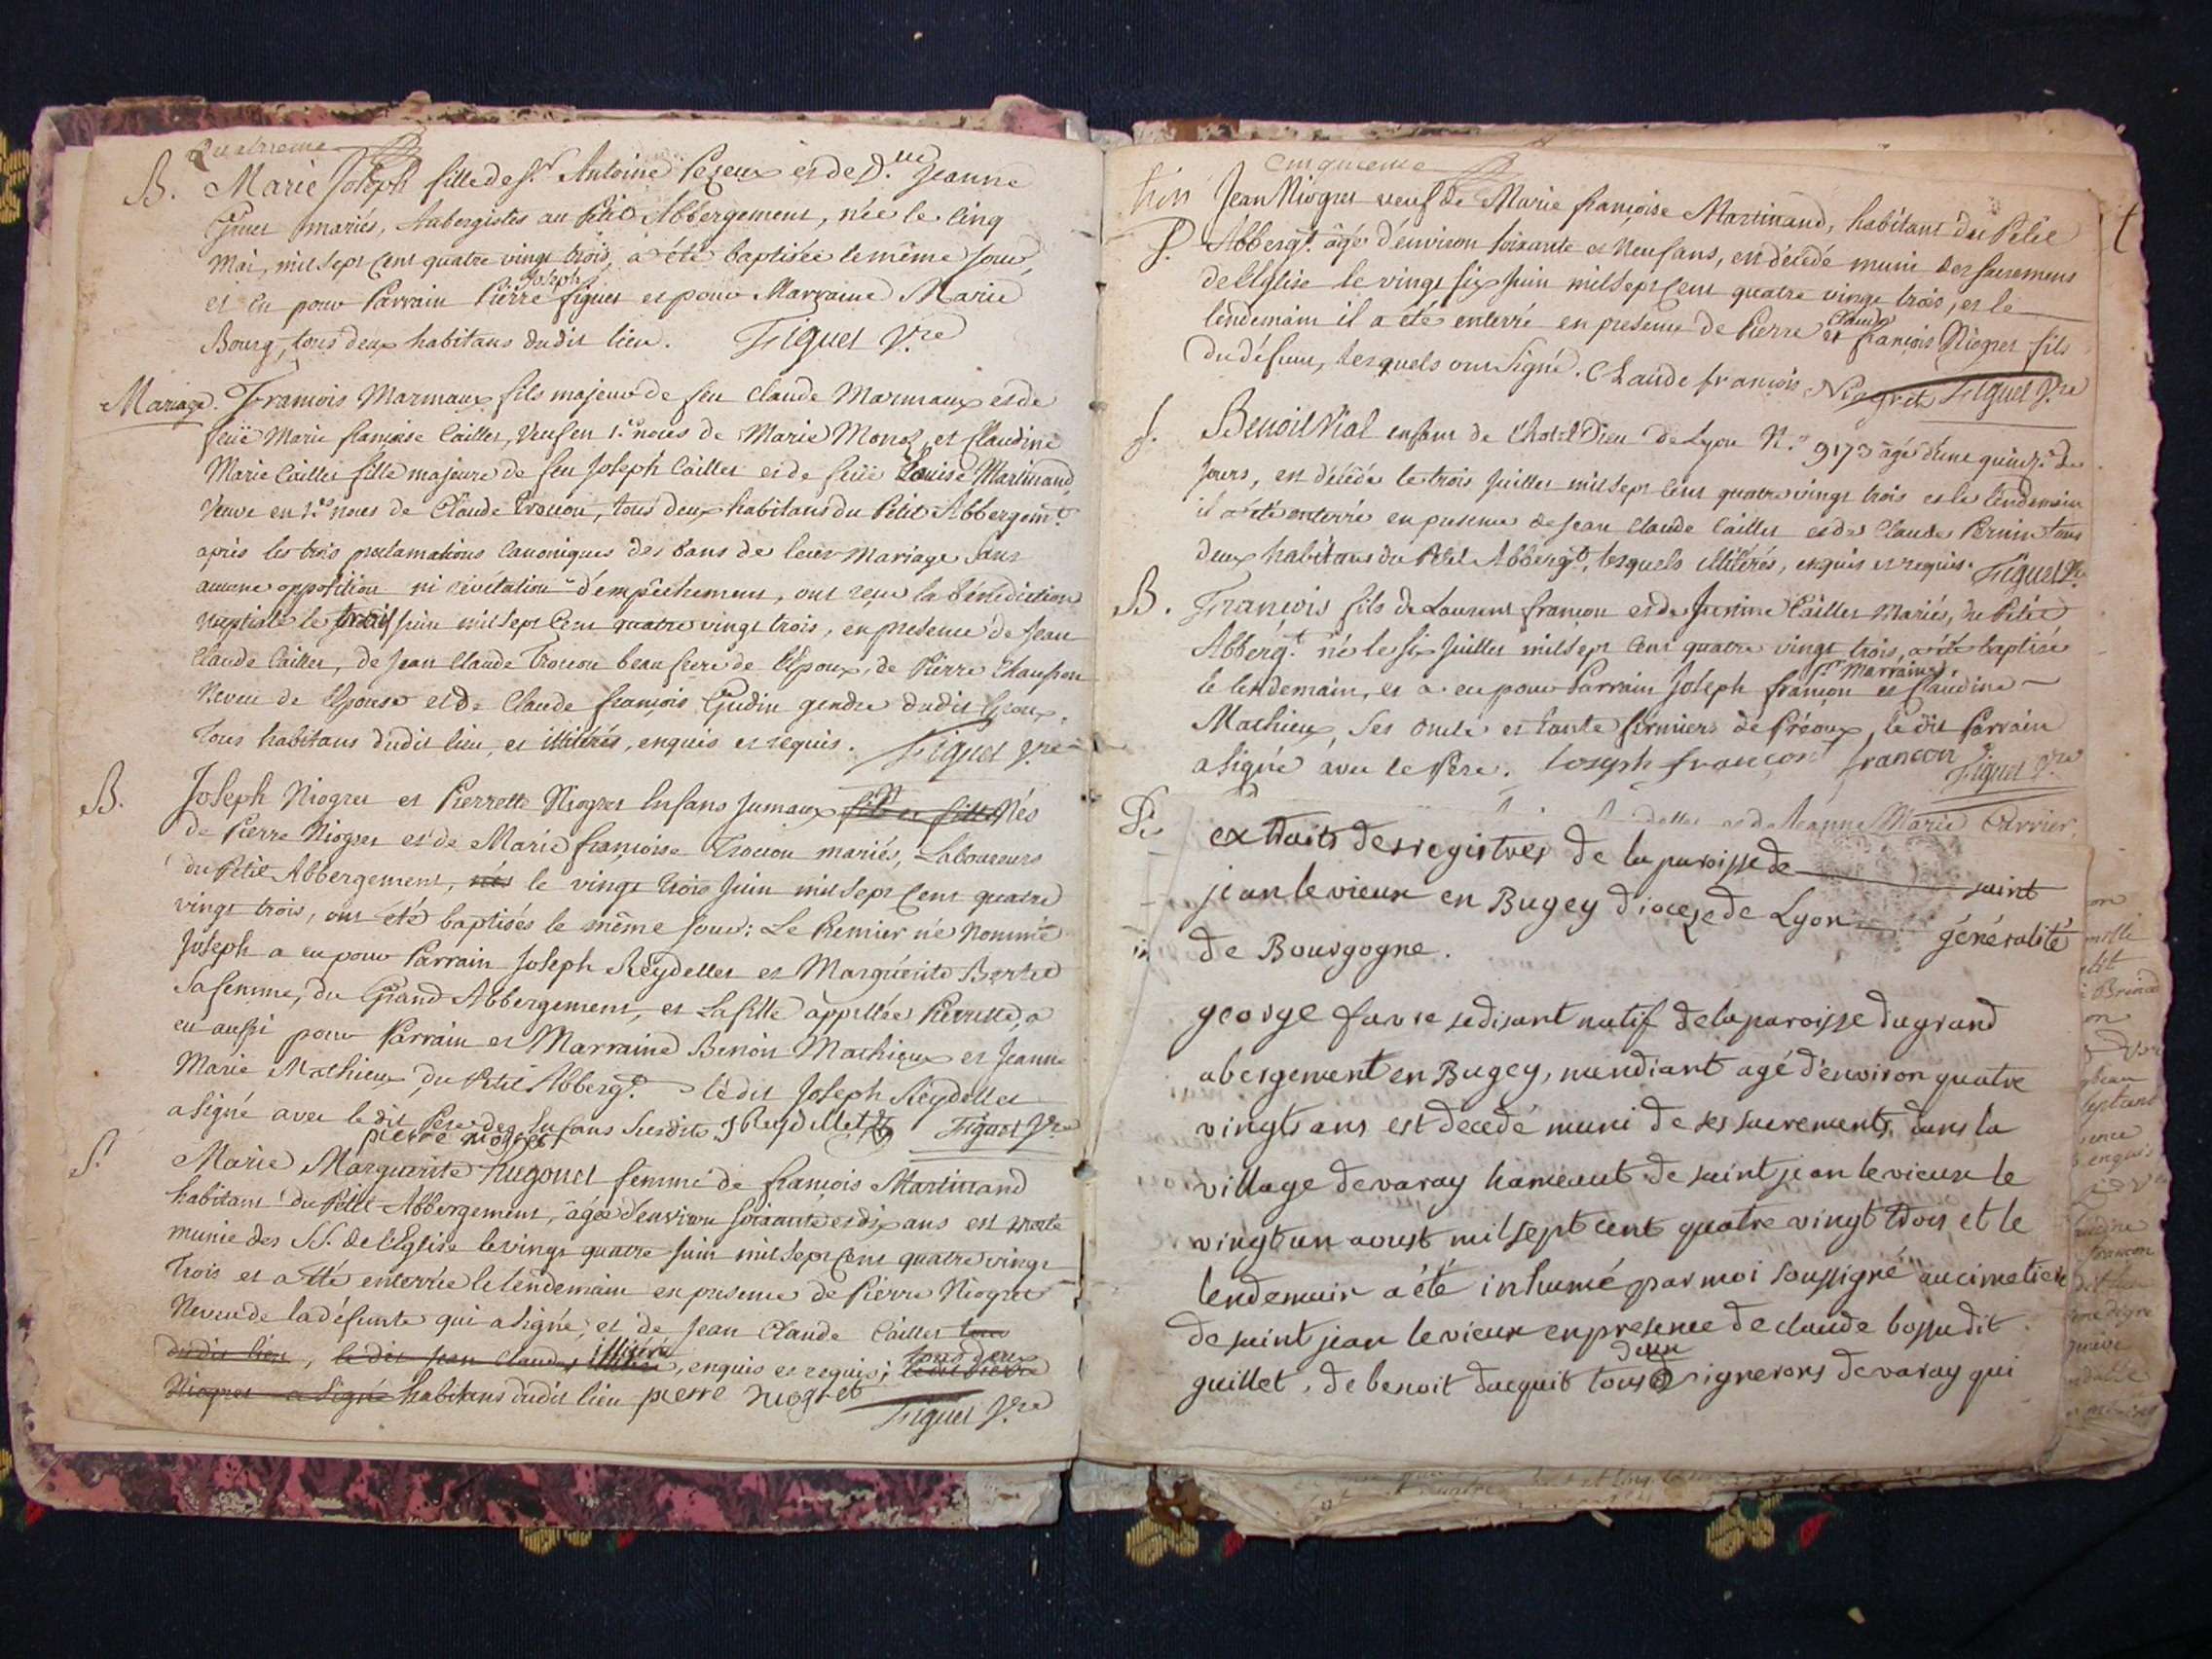 Quatrieme
B. Marie Joseph fille de Sr. Antoine Pezeux et de D.lle Jeanne
mariés, Aubergistes au Petit Abbergement, née le cinq
Mai, mil sept cent quatre vingt trois, a été baptisée le même jour,
et eu pour Parrain Pierre Joseph figuet et pour Marraine Marie
Bourg, tous deux habitans dudit lieu. Figuet Vre
Mariage. François Marmaux fils majeur de feu Claude Marmaux et de
feüe Marie françoise Caillet, Veuf en 1.es noces de Marie Monoz, et Claudine
Marie Caillet fille majeure de feu Joseph Caillet et de feüe Louise Martinand
Veuve en 1.es noces de Claude Trocon, tous deux habitans du Petit Abbergemt.
après les trois proclamations Canoniques des bans de leur Mariage sans
aucune opposition ni révélation d'empêchement, ont reçu la bénédiction
nuptiale le trois juin mil sept cent quatre vingt trois, en presence de Jean
Claude Caillet, de Jean Claude Trocon beau frere de l'Epoux, de Pierre Chanson
Neveu de l'Epouse et de Claude françois Gudin gendre dudit Epoux,
tous habitans dudit lieu, et illitérés, enquis et requis. Figuet Vre
B. Joseph Niogret et Pierrette Niogret Enfans Jumaux fils et fille Nés
de Pierre Niogret et de Marie françoise Trocon mariés, Laboureurs
du Petit Abbergement, nés le vingt trois Juin mil sept cent quatre
vingt trois, ont été baptisés le même jour: Le Premier né nommé
Joseph a eu pour Parrain Joseph Reydellet et Marguerite Bertet
sa femme, du Grand Abbergement, et La fille appellée Pierrette, a
eu aussi pour Parrain et Marraine Benoit Mathieux et Jeanne
Marie Mathieux du Petit Abbergt. lédit Joseph Reydellet
a signé avec ledit Pere des Enfans susdits J Reydellet Figuet Vre
pierre niogret
S. Marie Marguerite hugonet femme de françois Martinand
habitant du Petit Abbergement, âgée d'environ soixante et dix ans est morte
munie des SS. de l'Eglise le vingt quatre Juin mil sept cent quatre vingt
trois et a été enterrée le lendemain en presence de Pierre Niogret
Neveu de la défunte qui a signé, et de Jean Claude Caillet tous
dudit lieu, ledit Jean Claude illitéré, enquis et requis; tous deux
Niogret a signé habitans dudit lieu pierre niogret
Figuet Vre
Cinquieme
Jean Niogret veuf de Marie françoise Martinand, habitant du Petit
S. Abbergt. âgé d'environ soixante et Neuf ans, est décédé muni des sacremens
de l'Eglise le vingt six juin mil sept cent quatre vingt trois, et le
lendemain il a été enterré en presence de Pierre et Claude françois Niogret fils
du défunt, lesquels ont signé. Claude francois Niogret Figuet Vre
S. Benoit Vial enfant de l'hotel Dieu de Lyon N.o 9173 âgé d'une quinz.e de
jours, est décédé le trois Juillet mil sept cent quatre vingt trois et le lendemain
il a été enterré en presence de Jean Claude Caillet et de Claude Pernin tous
deux habitans du Petit Abbergt, lesquels illitérés, enquis et requis. Figuet Vre
B. François fils de Laurent françon et de Justine Caillet Mariés, du Petit
Abbergt. né le six Juillet mil sept cent quatre vingt trois, a été baptisé
le lendemain, et a eu pour Parrain Joseph françon et pr Marraine Claudine
Mathieux, ses oncle et tante fermiers de Préoux, le dit Parrain
a signé avec le Père. Joseph francon francon Figuet Vre
de Jeanne Marie Carrier
extraits des registres de la paroisse de saint
jean le vieux en Bugey diocese de Lyon généralité
de Bourgogne.
george favre se disant natif de la paroisse du grand
abergement en Bugey, mendiant agé d'environ quatre
vingts ans est décédé muni de ses sacrements, dans la
village de varay hameaut de saint jean le vieux le
vingt un aoust mil sept cent quatre vingt trois et le
lendemain a été inhumé par moi soussigné au cimetiere
de saint jean le vieux en presence de claude bossu dit
guillet, de benoit dacquit tous deux vignerons de varay qui